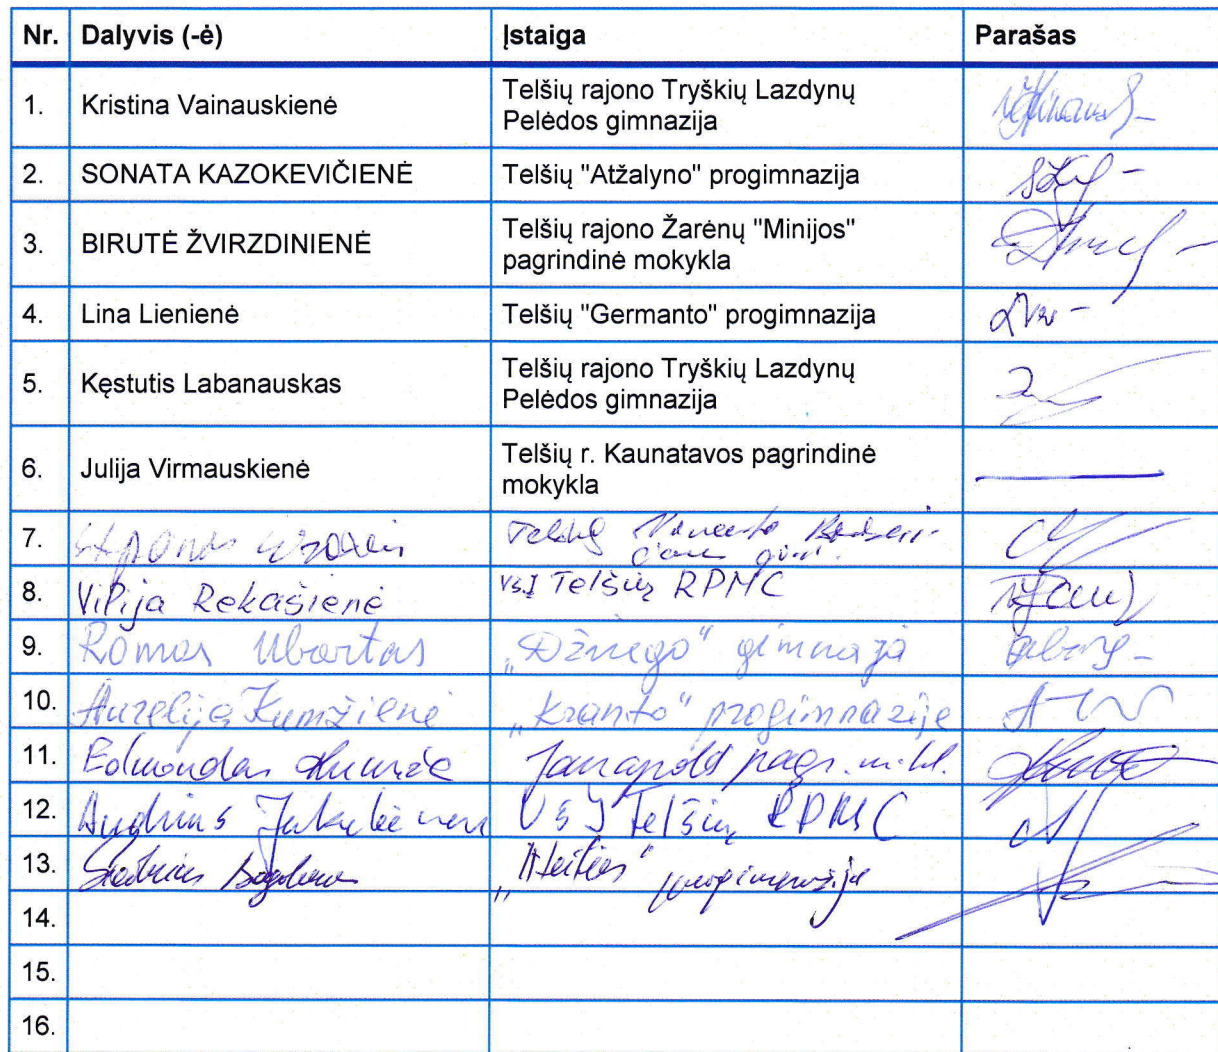 Nr. Dalyvis (-ė) Įstaiga Parašas
1. Kristina Vainauskienė Telšių rajono Tryškių Lazdynų
Pelėdos gimnazija
2. SONATA KAZOKEVIČIENĖ Telšių "Atžalyno" progimnazija
3. BIRUTĖ ŽVIRZDINIENĖ Telšių rajono Žarėnų "Minijos"
pagrindinė mokykla
4. Lina Lienienė Telšių "Germanto" progimnazija
5. Kęstutis Labanauskas Telšių rajono Tryškių Lazdynų
Pelėdos gimnazija
6. Julija Virmauskienė Telšių r. Kaunatavos pagrindinė
mokykla
7.
8. Vilija Rekašienė VšĮ Telšių RPMC
9. Romas Ubartas „Džiugo“ gimnazija
10. Aurelija Kumžienė „Kranto“ progimnazija
11. Edmondas
12. Audrius VšĮ Telšių RPMC
13. „Ateities“ progimnazija
14.
15.
16.